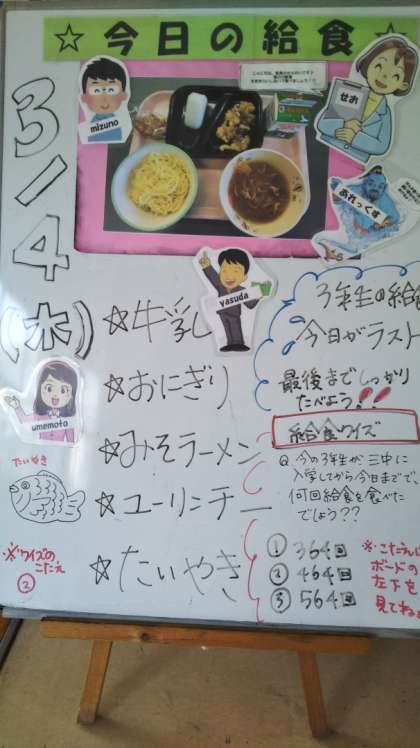 ☆今日の給食☆
3/4(木)
mizuno
せお
あれっくす
yasuda
umemoto
☆牛乳
☆おにぎり
☆みそラーメン
☆ユーリンチー
☆たいやき
3年生の給
今日がラスト
最後までしっかり
たべよう!!
給食クイズ
Q.今の3年生が三中に
入学してから今日までで、
何回給食を食べた
でしょう??
① 364回
② 464回
③ 564回
※こたえは
ボードの
左下を
見てね
たいやき
※クイズの
こたえ
②